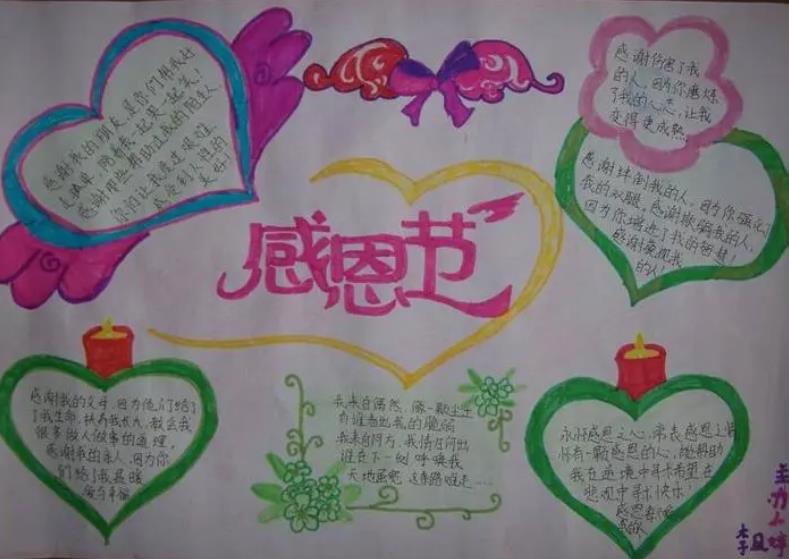 感恩节
感谢我的朋友,是你们帮我赶
走孤单,陪着我一起哭一起笑!
感谢那些帮助过我的陌生人,
你们让我度过艰难,
感受到人性的
美好!
感谢伤害了我
的人,因为你磨炼
了我的心志,让我
变得更成熟。
感谢绊倒我的人,因为你强化了
我的双腿。感谢欺骗我的人,
因为你增进了我的智慧!
感谢藐视我
的人!
感谢我的父母,因为他们给了
了我生命,抚养我长大,教会我
很多做人做事的道理。
感谢我的亲人,因为你
们给了我温暖
我来自偶然,像一颗尘土
有谁看出我的脆弱
我来自何方,我情归何处
谁在下一刻呼唤我
天地虽宽 这条路难走……
永怀感恩之心,常表感恩之情
怀有一颗感恩的心,能帮助
我在逆境中寻求希望在
悲观中寻求快乐!
主办